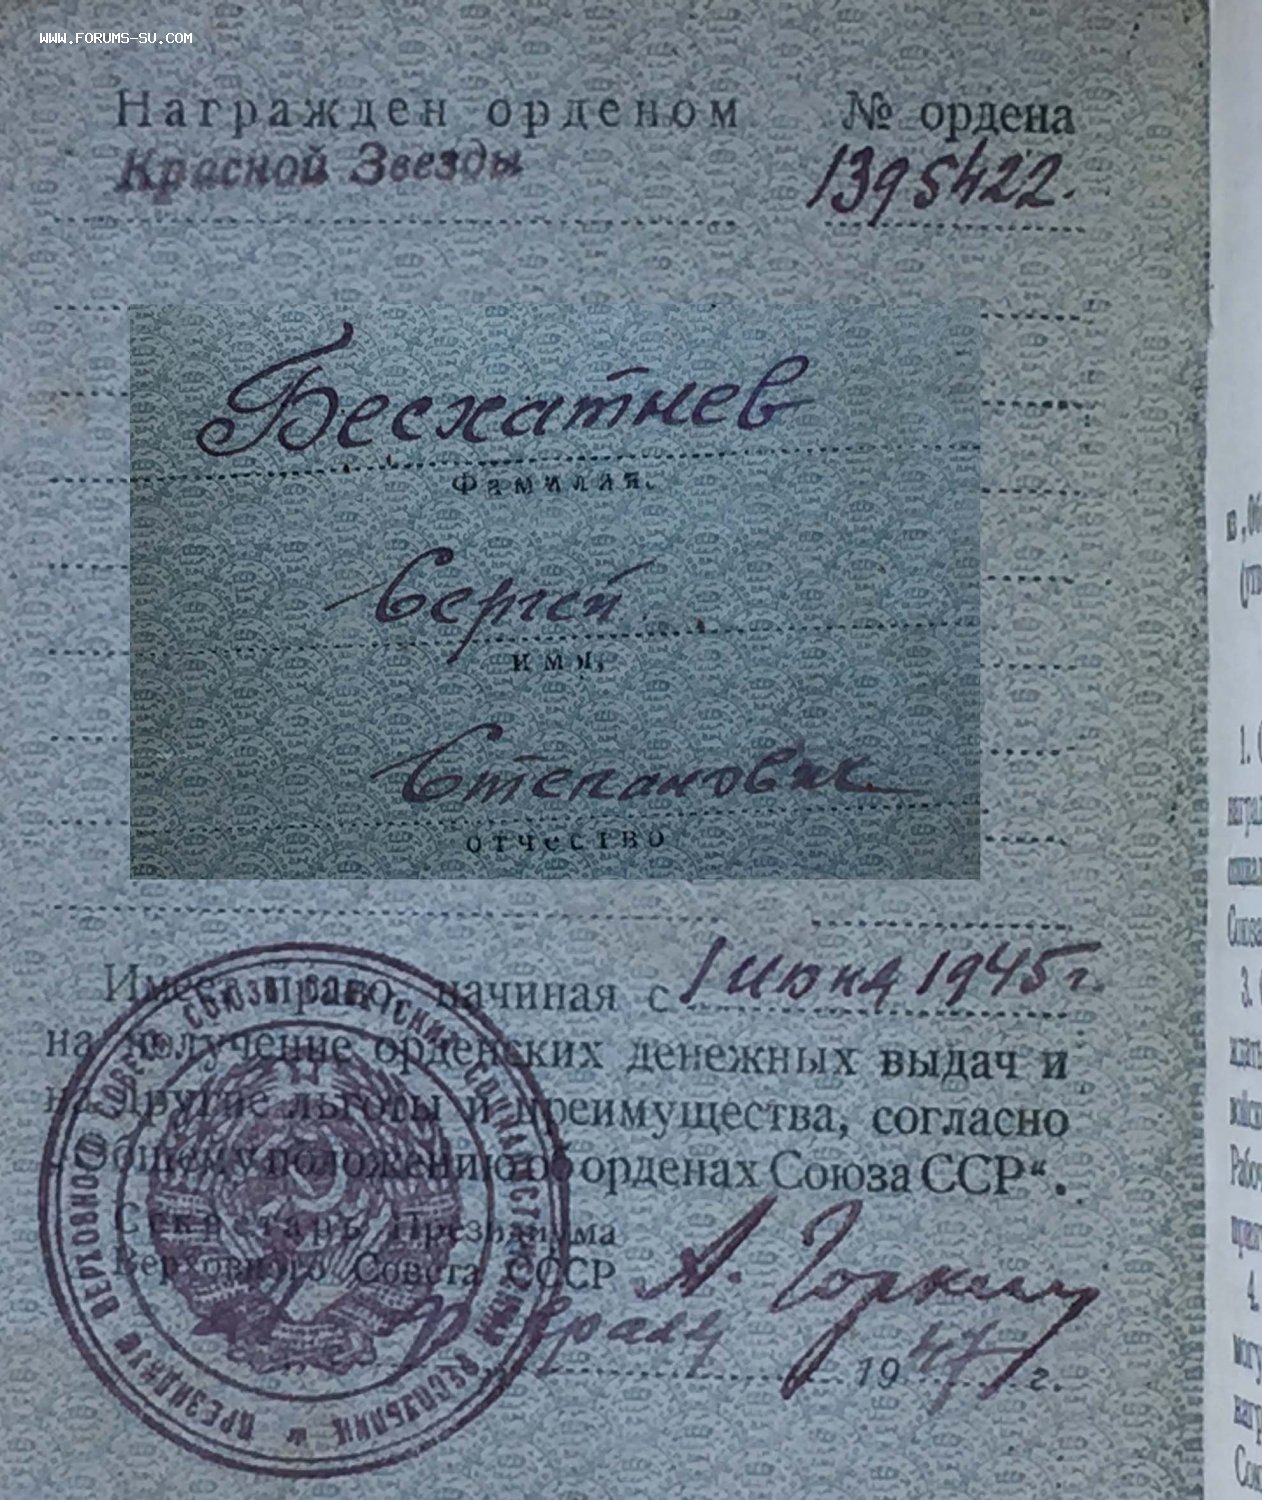 WWW.FORUMS-SU.COM
Награжден орденом № ордена
Красной Звезды 1395422.
Бесхатнев
Фамилия.
Сергей
имя.
Степанович
отчество
Имеет право, начиная с 1 июня 1945 г.
на получение орденских денежных выдач и
на другие льготы и преимущества, согласно
„Общему положению об орденах Союза ССР“.
Секретарь Президиума
Верховного Совета СССР А. Горкин
февраля 1947 г.
ПРЕЗИДИУМ ВЕРХОВНОГО СОВЕТА СОЮЗА СОВЕТСКИХ СОЦИАЛИСТИЧЕСКИХ РЕСПУБЛИК
1.
3.
4.